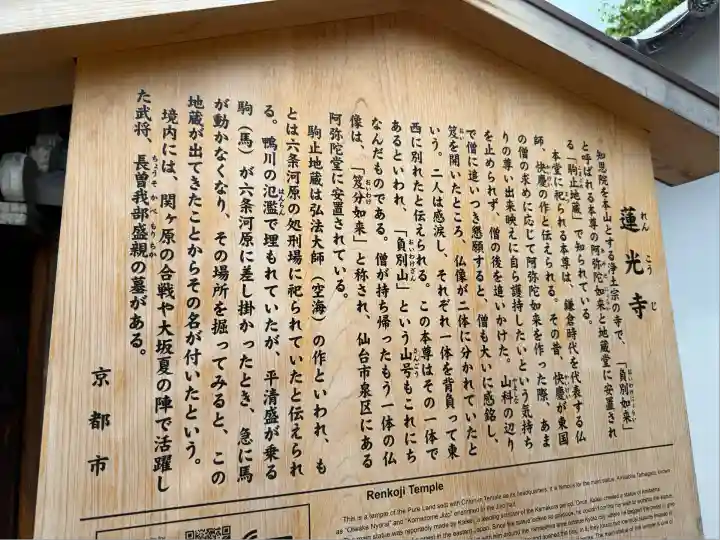 蓮光寺
れんこうじ
知恩院を本山とする浄土宗の寺で、「負別如来」
と呼ばれる本尊の阿弥陀如来と地蔵堂に安置され
る「駒止地蔵」で知られている。
本堂に祀られる本尊は、鎌倉時代を代表する仏
師、快慶の作と伝えられる。その昔、快慶が東国
の僧の求めに応じて阿弥陀如来を作った際、あま
りの尊い出来映えに自ら護持したいという気持ち
を止められず、僧の後を追いかけた。山科の辺り
で僧に追いつき懇願すると、僧も大いに感銘し、
笈を開いたところ、仏像が二体に分かれていたと
いう。二人は感涙し、それぞれ一体を背負って東
西に別れたと伝えられる。この本尊はその一体で
あるといわれ、「負別山」という山号もこれにち
なんだものである。僧が持ち帰ったもう一体の仏
像は、「笈分如来」と称され、仙台市泉区にある
阿弥陀堂に安置されている。
駒止地蔵は弘法大師(空海)の作といわれ、も
とは六条河原の処刑場に祀られていたと伝えられ
る。鴨川の氾濫で埋もれていたが、平清盛が乗る
駒(馬)が六条河原に差し掛かったとき、急に馬
が動かなくなり、その場所を掘ってみると、この
地蔵が出てきたことからその名が付いたという。
境内には、関ヶ原の合戦や大坂夏の陣で活躍し
た武将、長曽我部盛親の墓がある。
京都市
Renkoji Temple
This is a temple of the Pure Land sect with Chion-in Temple as its headquarters.